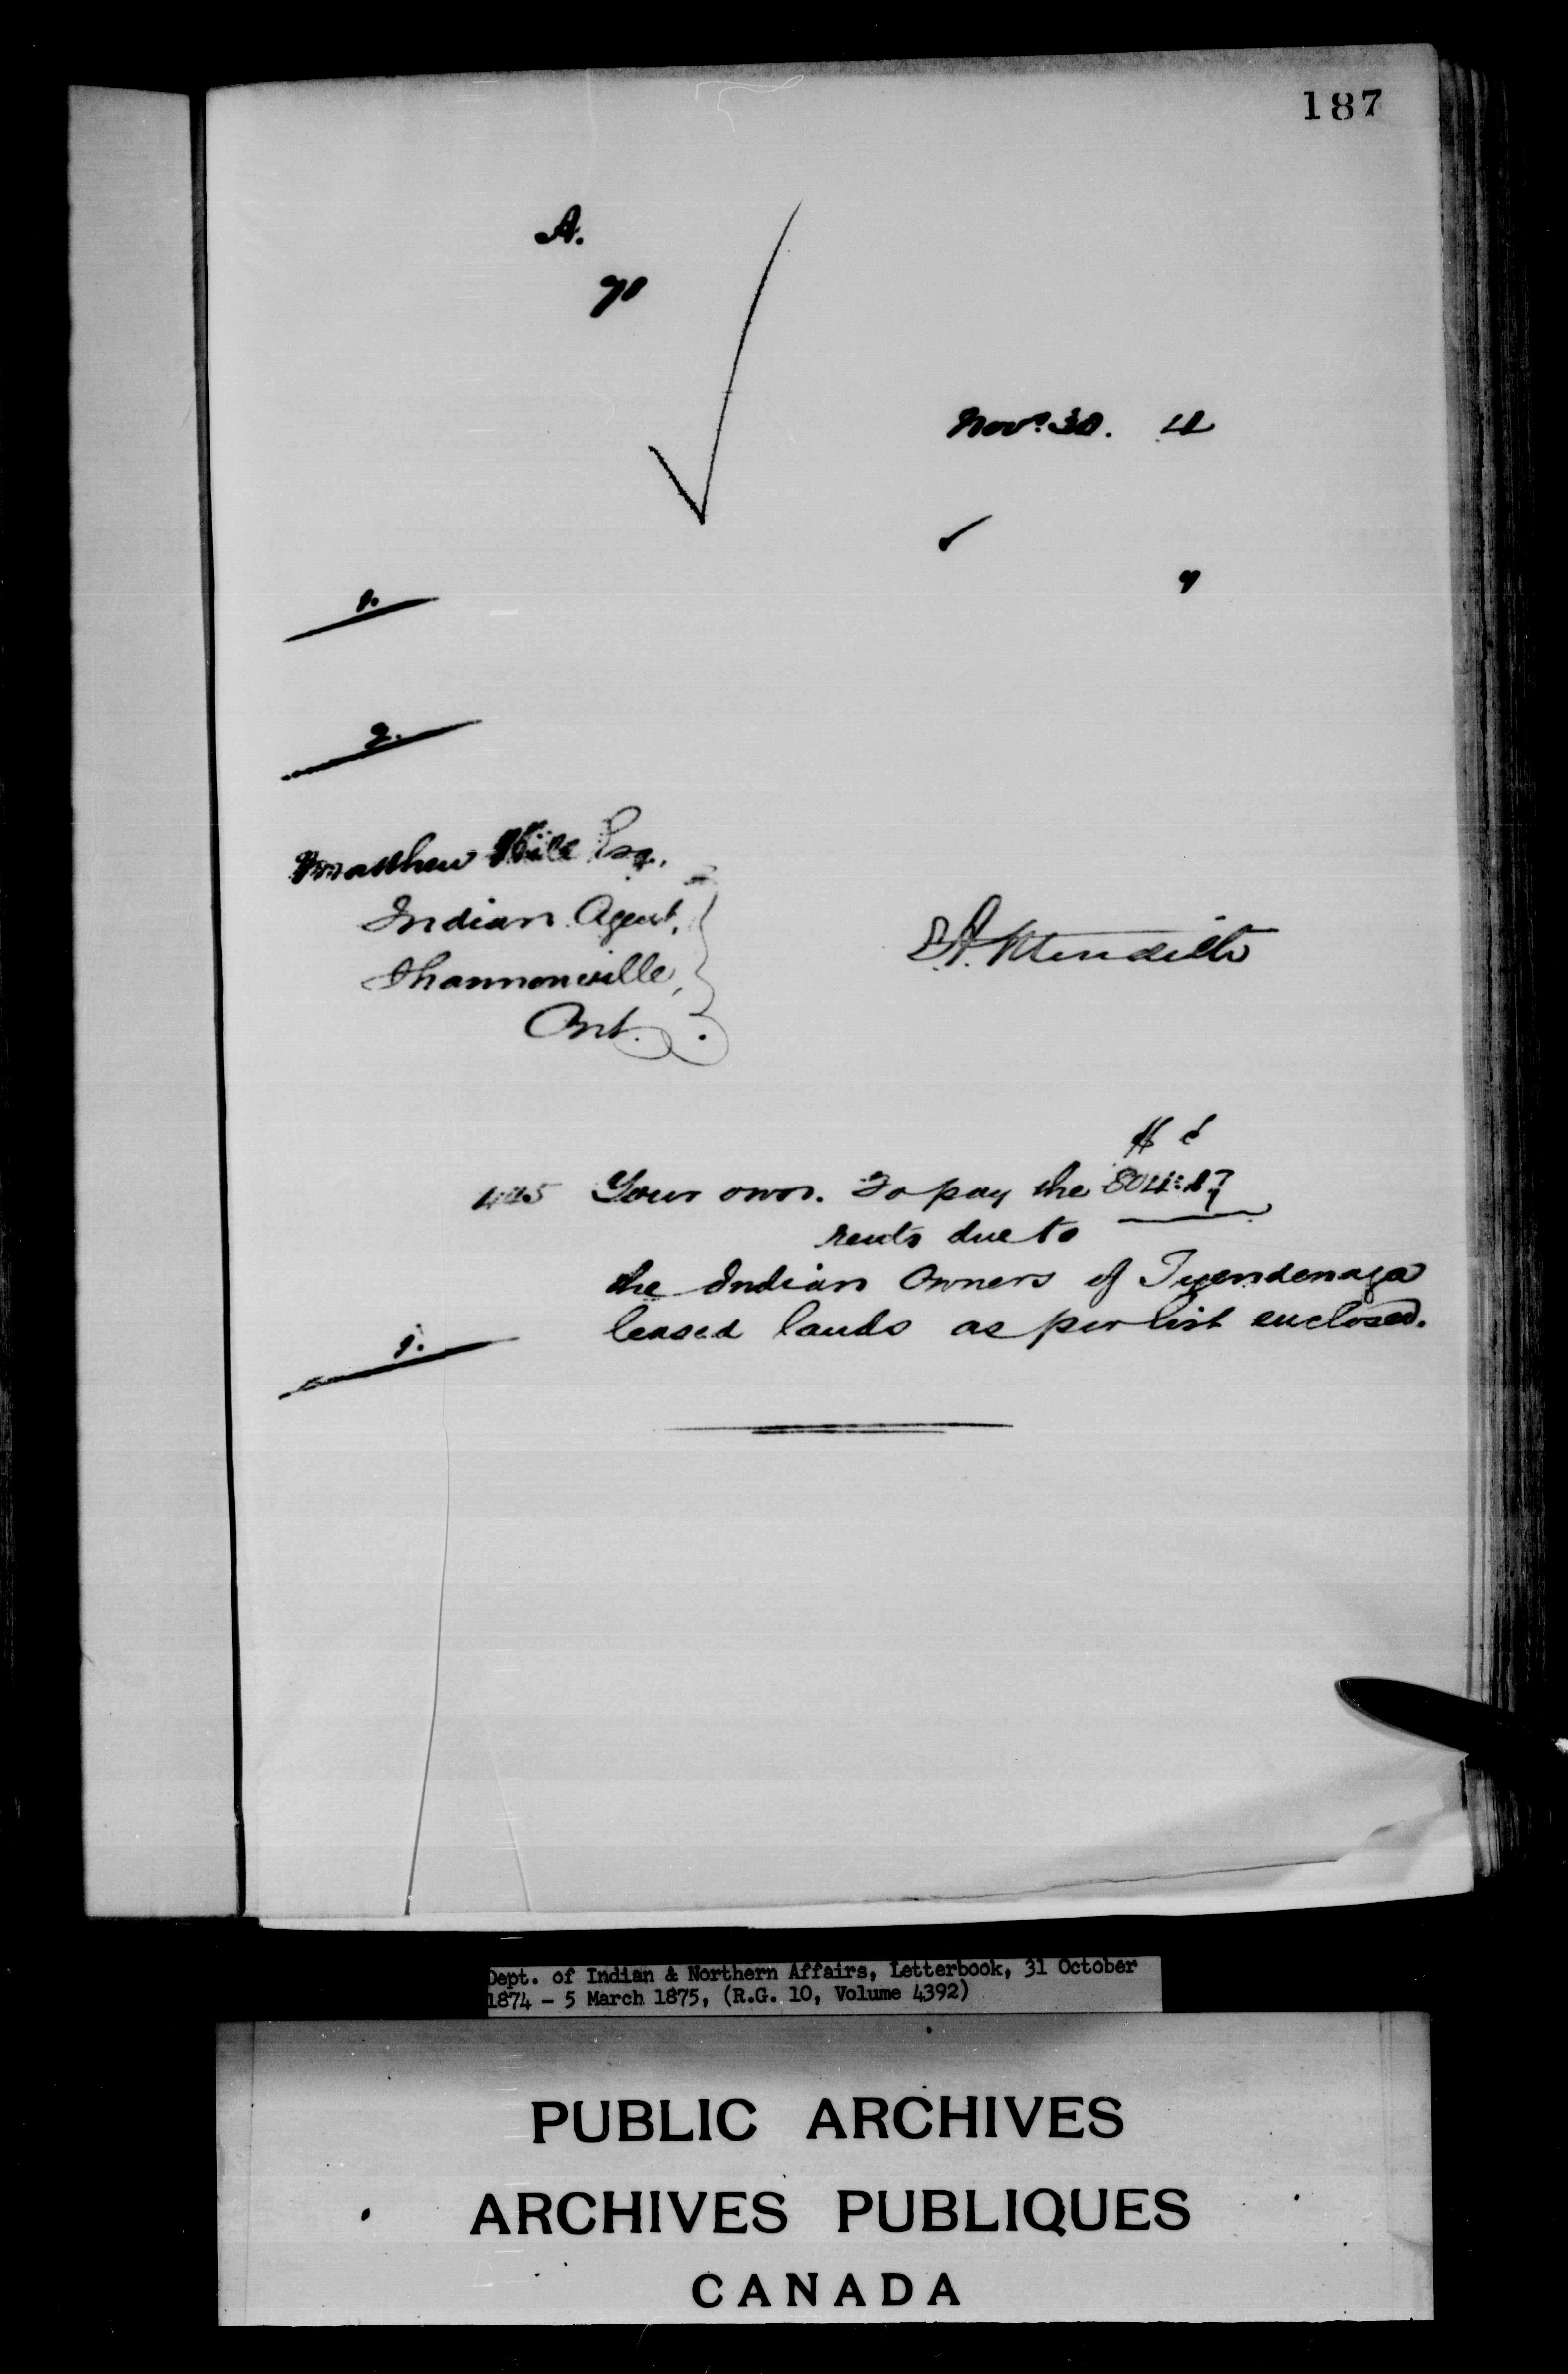 187
A.
70
Nov. 30. 4
1.
2.
Matthew Hill Esq.
Indian Agent,
Shannonville,
Ont.
E.A. Meredith
$ c
Your own. To pay the
rents due to
the Indian Owners of Tyendenaga
leased lands as per list enclosed.
1.
Dept. of Indian & Northern Affairs, Letterbook, 31 October
1874 - 5 March 1875, (R.G. 10, Volume 4392)
PUBLIC ARCHIVES
ARCHIVES PUBLIQUES
CANADA